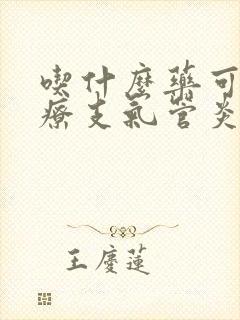 喫什麼藥可
療支氣管炎
王慶蓮